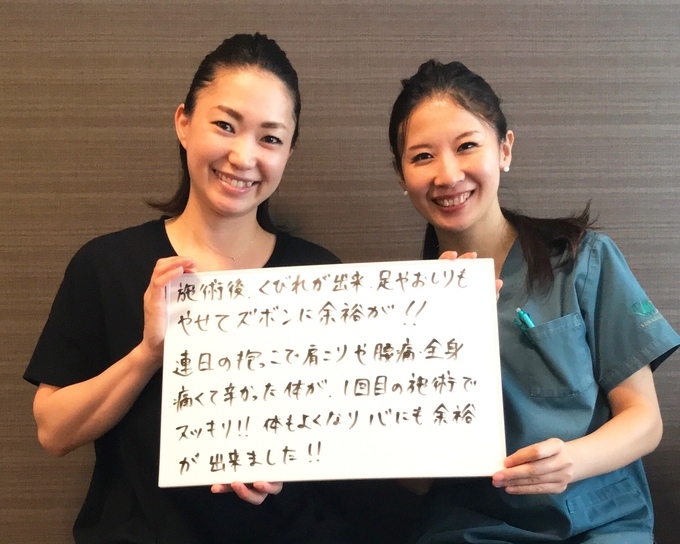 施術後、くびれが出来、足やおしりも
やせてズボンに余裕が!!
連日の抱っこで肩こりや腰痛、全身
痛くて辛かった体が、1回目の施術で
スッキリ!! 体もよくなり心にも余裕
が出来ました!!